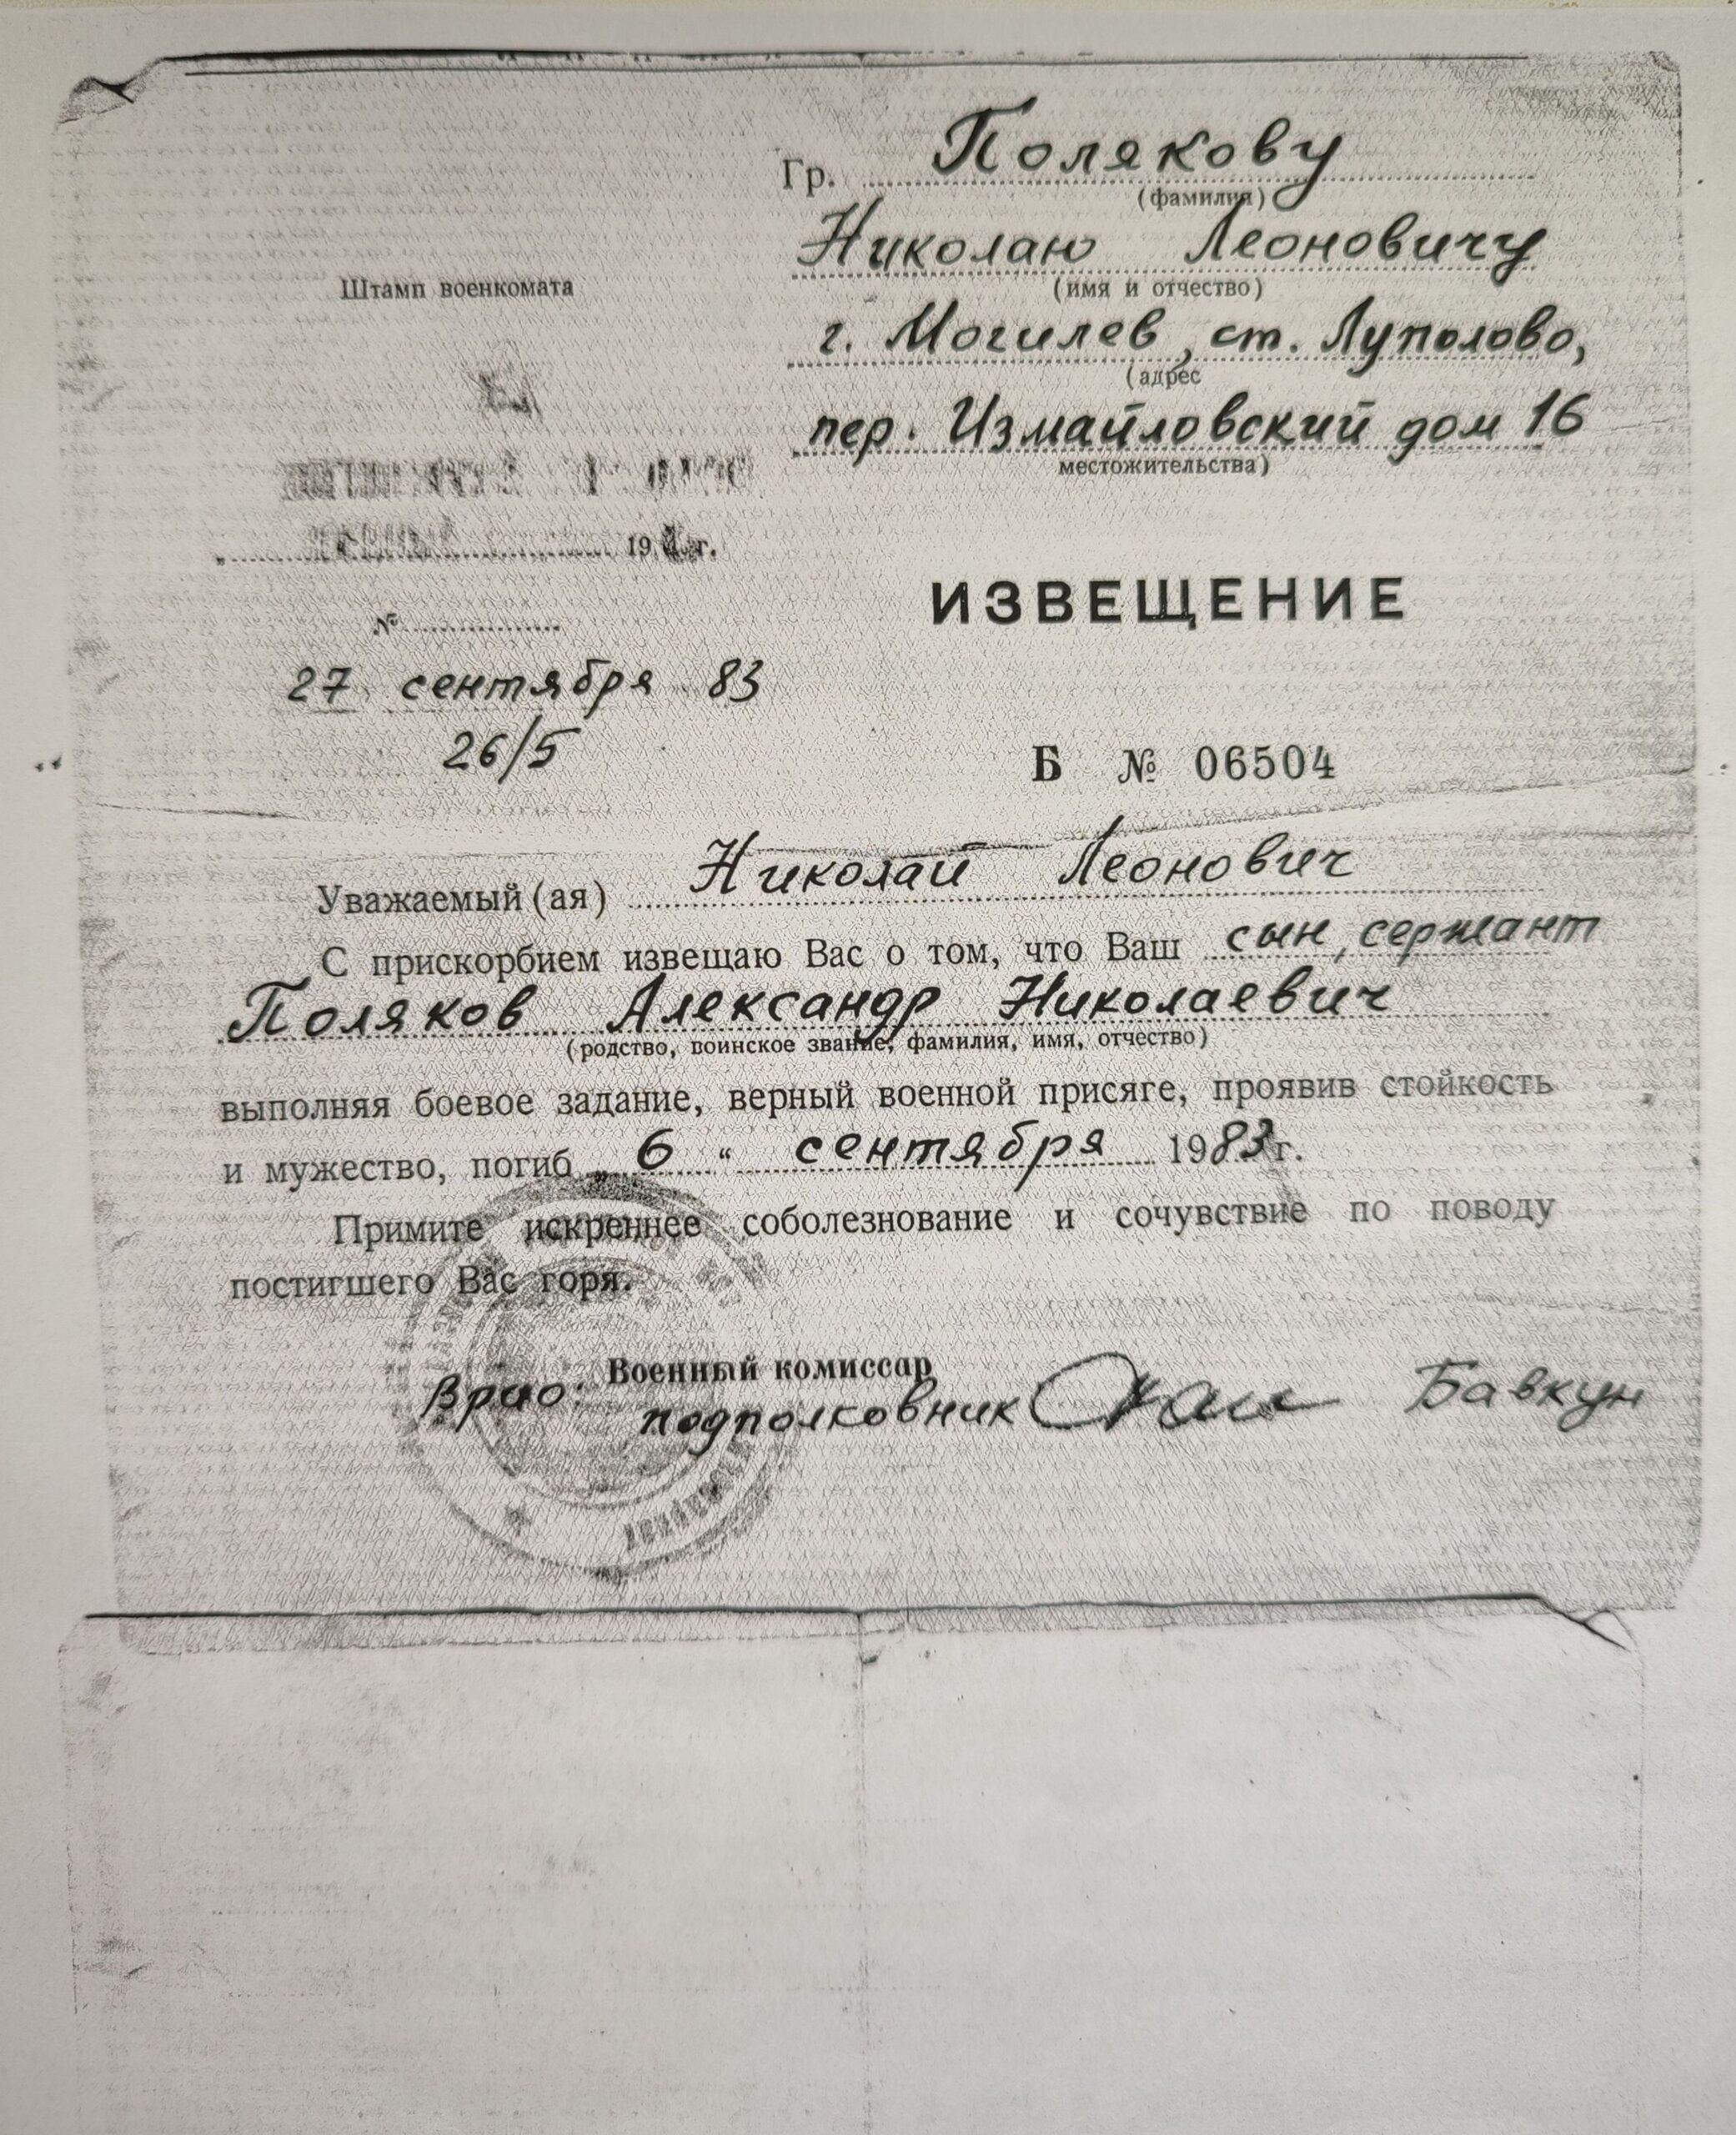 Гр. Полякову
(фамилия)
Николаю Леоновичу
(имя и отчество)
г. Могилев, ст. Луполово,
(адрес
пер. Измайловский дом 16
местожительства)
Штамп военкомата
19 г.
№
27 сентября 83
26/5
ИЗВЕЩЕНИЕ
Б № 06504
Уважаемый (ая) Николай Леонович
С прискорбием извещаю Вас о том, что Ваш сын, сержант
Поляков Александр Николаевич
(родство, воинское звание, фамилия, имя, отчество)
выполняя боевое задание, верный военной присяге, проявив стойкость
и мужество, погиб „ 6 “ сентября 1983 г.
Примите искреннее соболезнование и сочувствие по поводу
постигшего Вас горя.
Врио: Военный комиссар
подполковник Бавкун